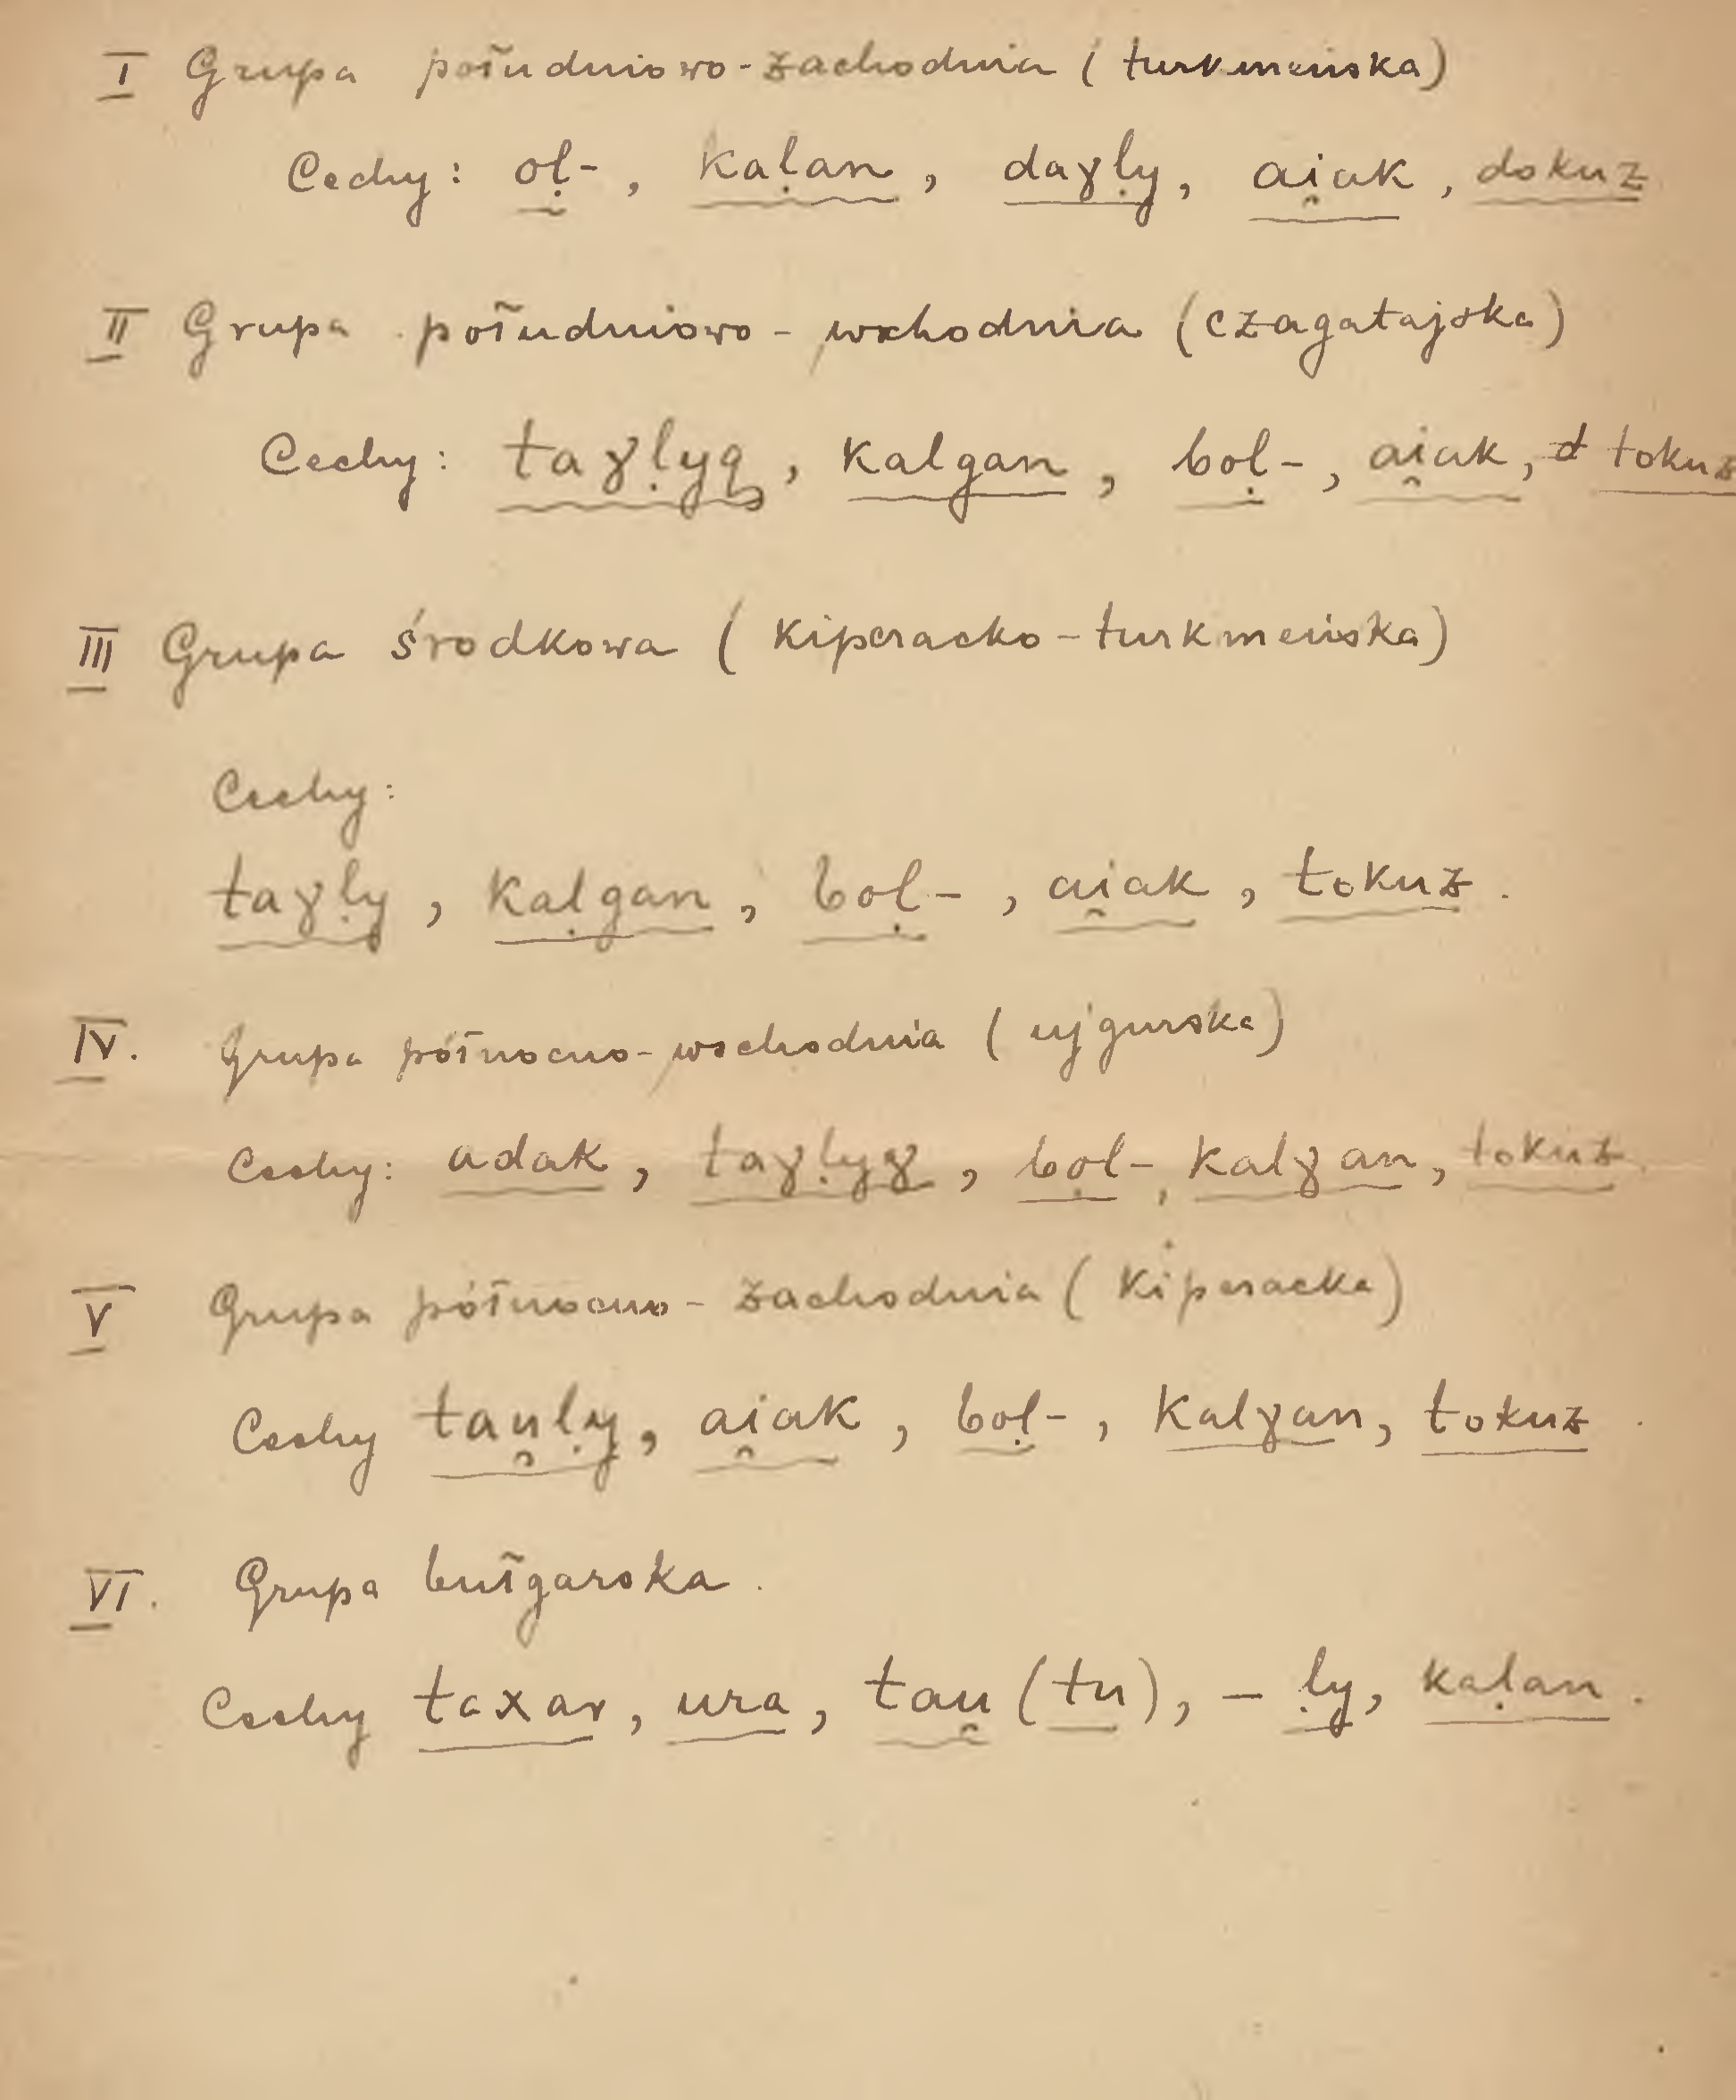 I Grupa południowo-zachodnia (turkmeńska)
Cechy: oḷ-, kaḷan, daɣḷy, ai̯ak, dokuz
II Grupa południowo-wschodnia (czagatajska)
Cechy: taɣḷyq, kalgan, boḷ-, ai̯ak, tokuz
III Grupa środkowa (kipczacko-turkmeńska)
Cechy:
taɣḷy, kaḷgan, boḷ-, ai̯ak, tokuz.
IV. Grupa północno-wschodnia (ujgurska)
Cechy: adak, taɣḷyɣ, boḷ-, kalɣan, tokuz
V Grupa północno-zachodnia (kipczacka)
Cechy tau̯ḷy, ai̯ak, boḷ-, kalɣan, tokuz.
VI. Grupa bułgarska.
Cechy taxar, ura, tau̯ (tu), -ḷy, kaḷan.